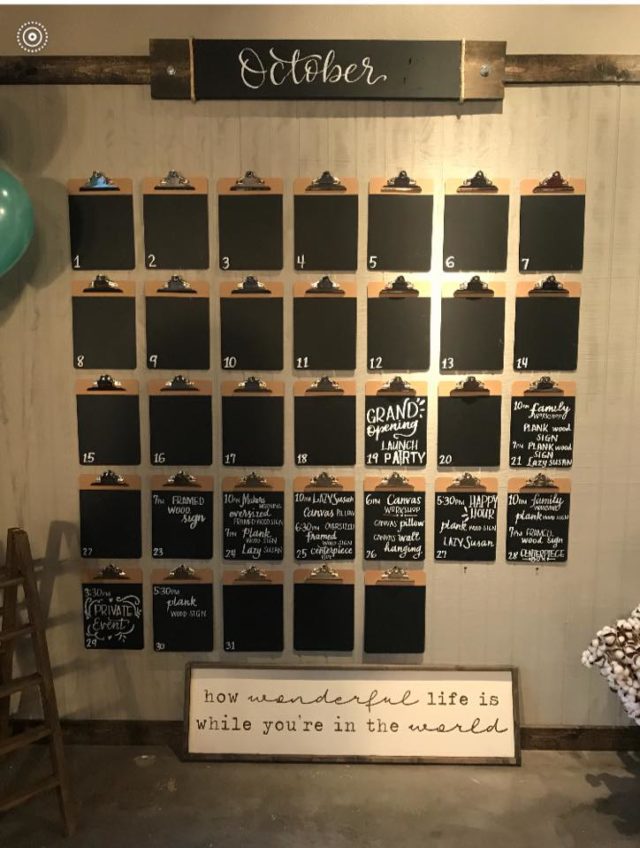 October
1
2
3
4
5
6
7
8
9
10
11
12
13
14
15
16
17
18
GRAND
Opening
LAUNCH
19 PARTY
20
10AM family
PLANK wood
SIGN
7PM PLANK wood
SIGN
21 Lazy SUSAN
22
7PM FRAMED
Wood
sign
23
10AM Makers
oversized
FRAMED WOOD SIGN
7PM Plank
WOOD SIGN
24 Lazy SUSAN
10AM LAZY Susan
Canvas PILLOW
6:30PM OVERSIZED
framed
WOOD SIGN
25 centerpiece
6PM Canvas
WORKSHOP
CANVAS pillow
CANVAS wall
26 hanging
5:30PM HAPPY
HOUR
plank WOOD SIGN
LAZY Susan
27
10AM family
plank WOOD SIGN
7PM FRAMED
wood sign
28 CENTERPIECE
BOX
3:30PM
PRIVATE
Event
29
5:30PM
plank
WOOD SIGN
30
31
how wonderful life is
while you're in the world